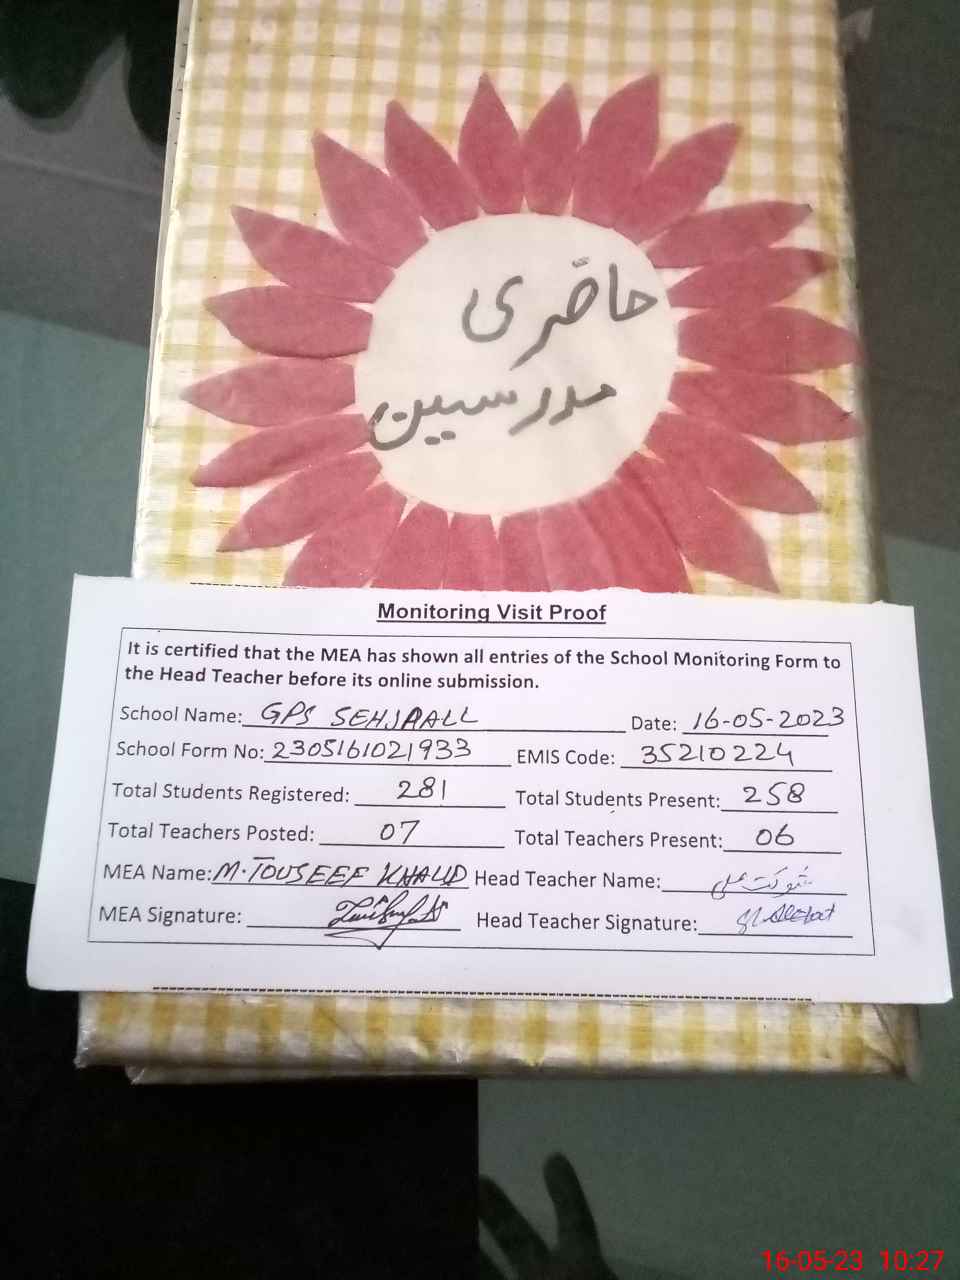 حاضری
مدرسین
Monitoring Visit Proof
It is certified that the MEA has shown all entries of the School Monitoring Form to
the Head Teacher before its online submission.
School Name: GPS SEHJPALL Date: 16-05-2023
School Form No: 2305161021933 EMIS Code: 35210224
Total Students Registered: 281 Total Students Present: 258
Total Teachers Posted: 07 Total Teachers Present: 06
MEA Name: M. TOUSEEF KHALID Head Teacher Name: شوکت علی
MEA Signature: Head Teacher Signature:
16-05-23 10:27